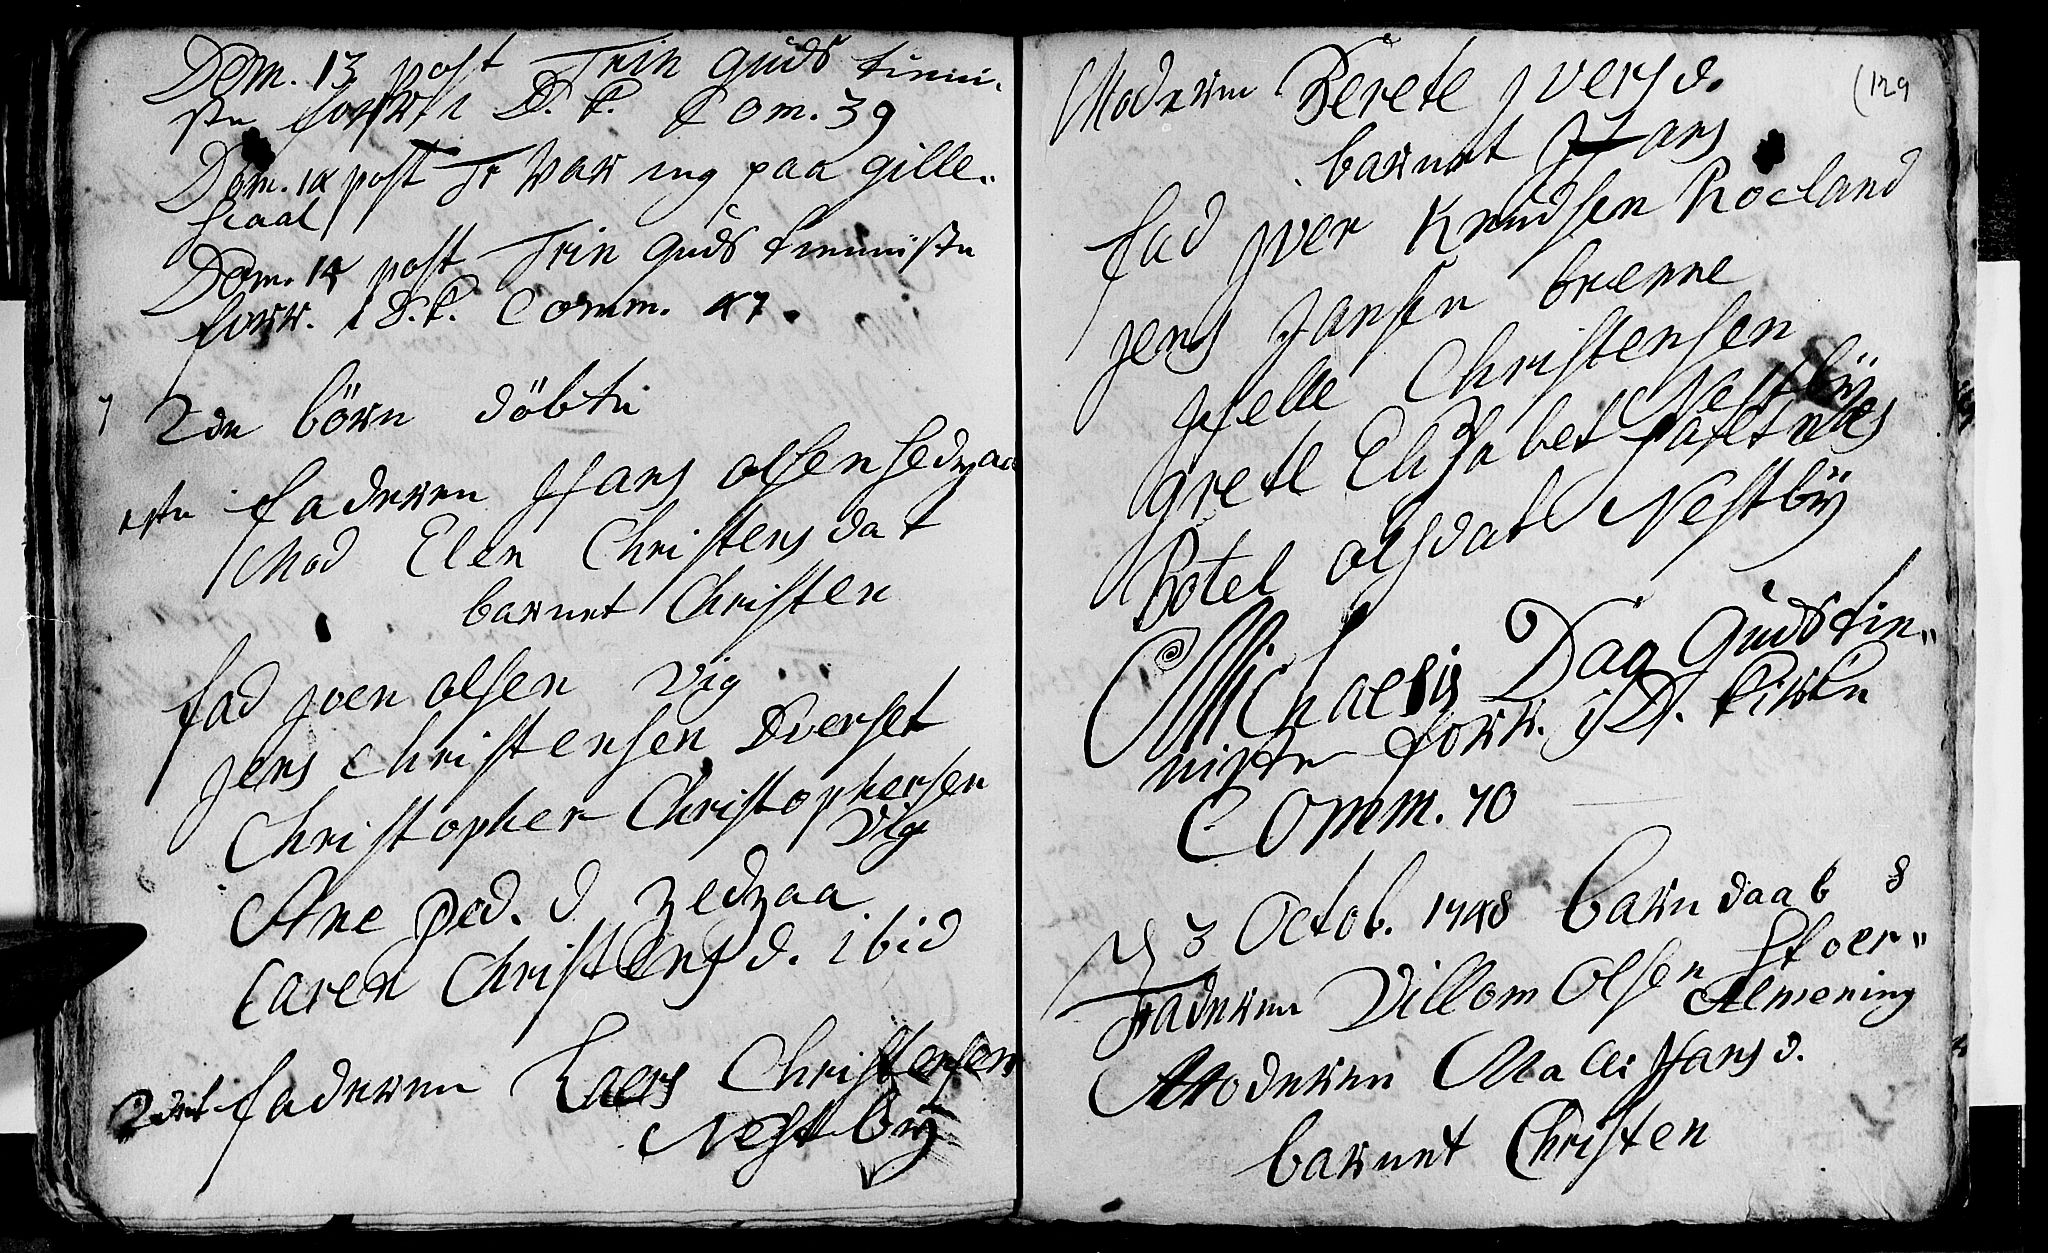 Dom. 13 post Trin Guds tienni-
ste forr i D. k. Com. 39
Dom. 14 post Tr var ieg paa gille-
skaal
Dom. 14 post Trin Guds tienniste
forr. i D. k. Comm. 47.
7 2de börn döbte
1ste faderen Hans Olsen Hedzaa
Mod Elen Christens dat
barnet Christen
fad joen olsen Vig
jens Christensen Dverset
Christopher Christophersen
Vig
Ane Ped. d Hedzaa
Caren Christens d. ibid
2det faderen Laers Christensen
Nestbÿ
(129
Moderen Berete jvers d.
barnet Hans
fad jver Knudsen Roeland
jens Hansen
Christensen
Nestbÿ
grete Elisabet
Botel olsdat Nestbÿ
Michaelis Dag Guds tie-
niste forr. i D. kirke
Comm. 70
D 3 Octob. 1748 barn daab 8
faderen Villom Olsen Stoer-
Almening
Moderen Malli Hans d.
barnet Christen